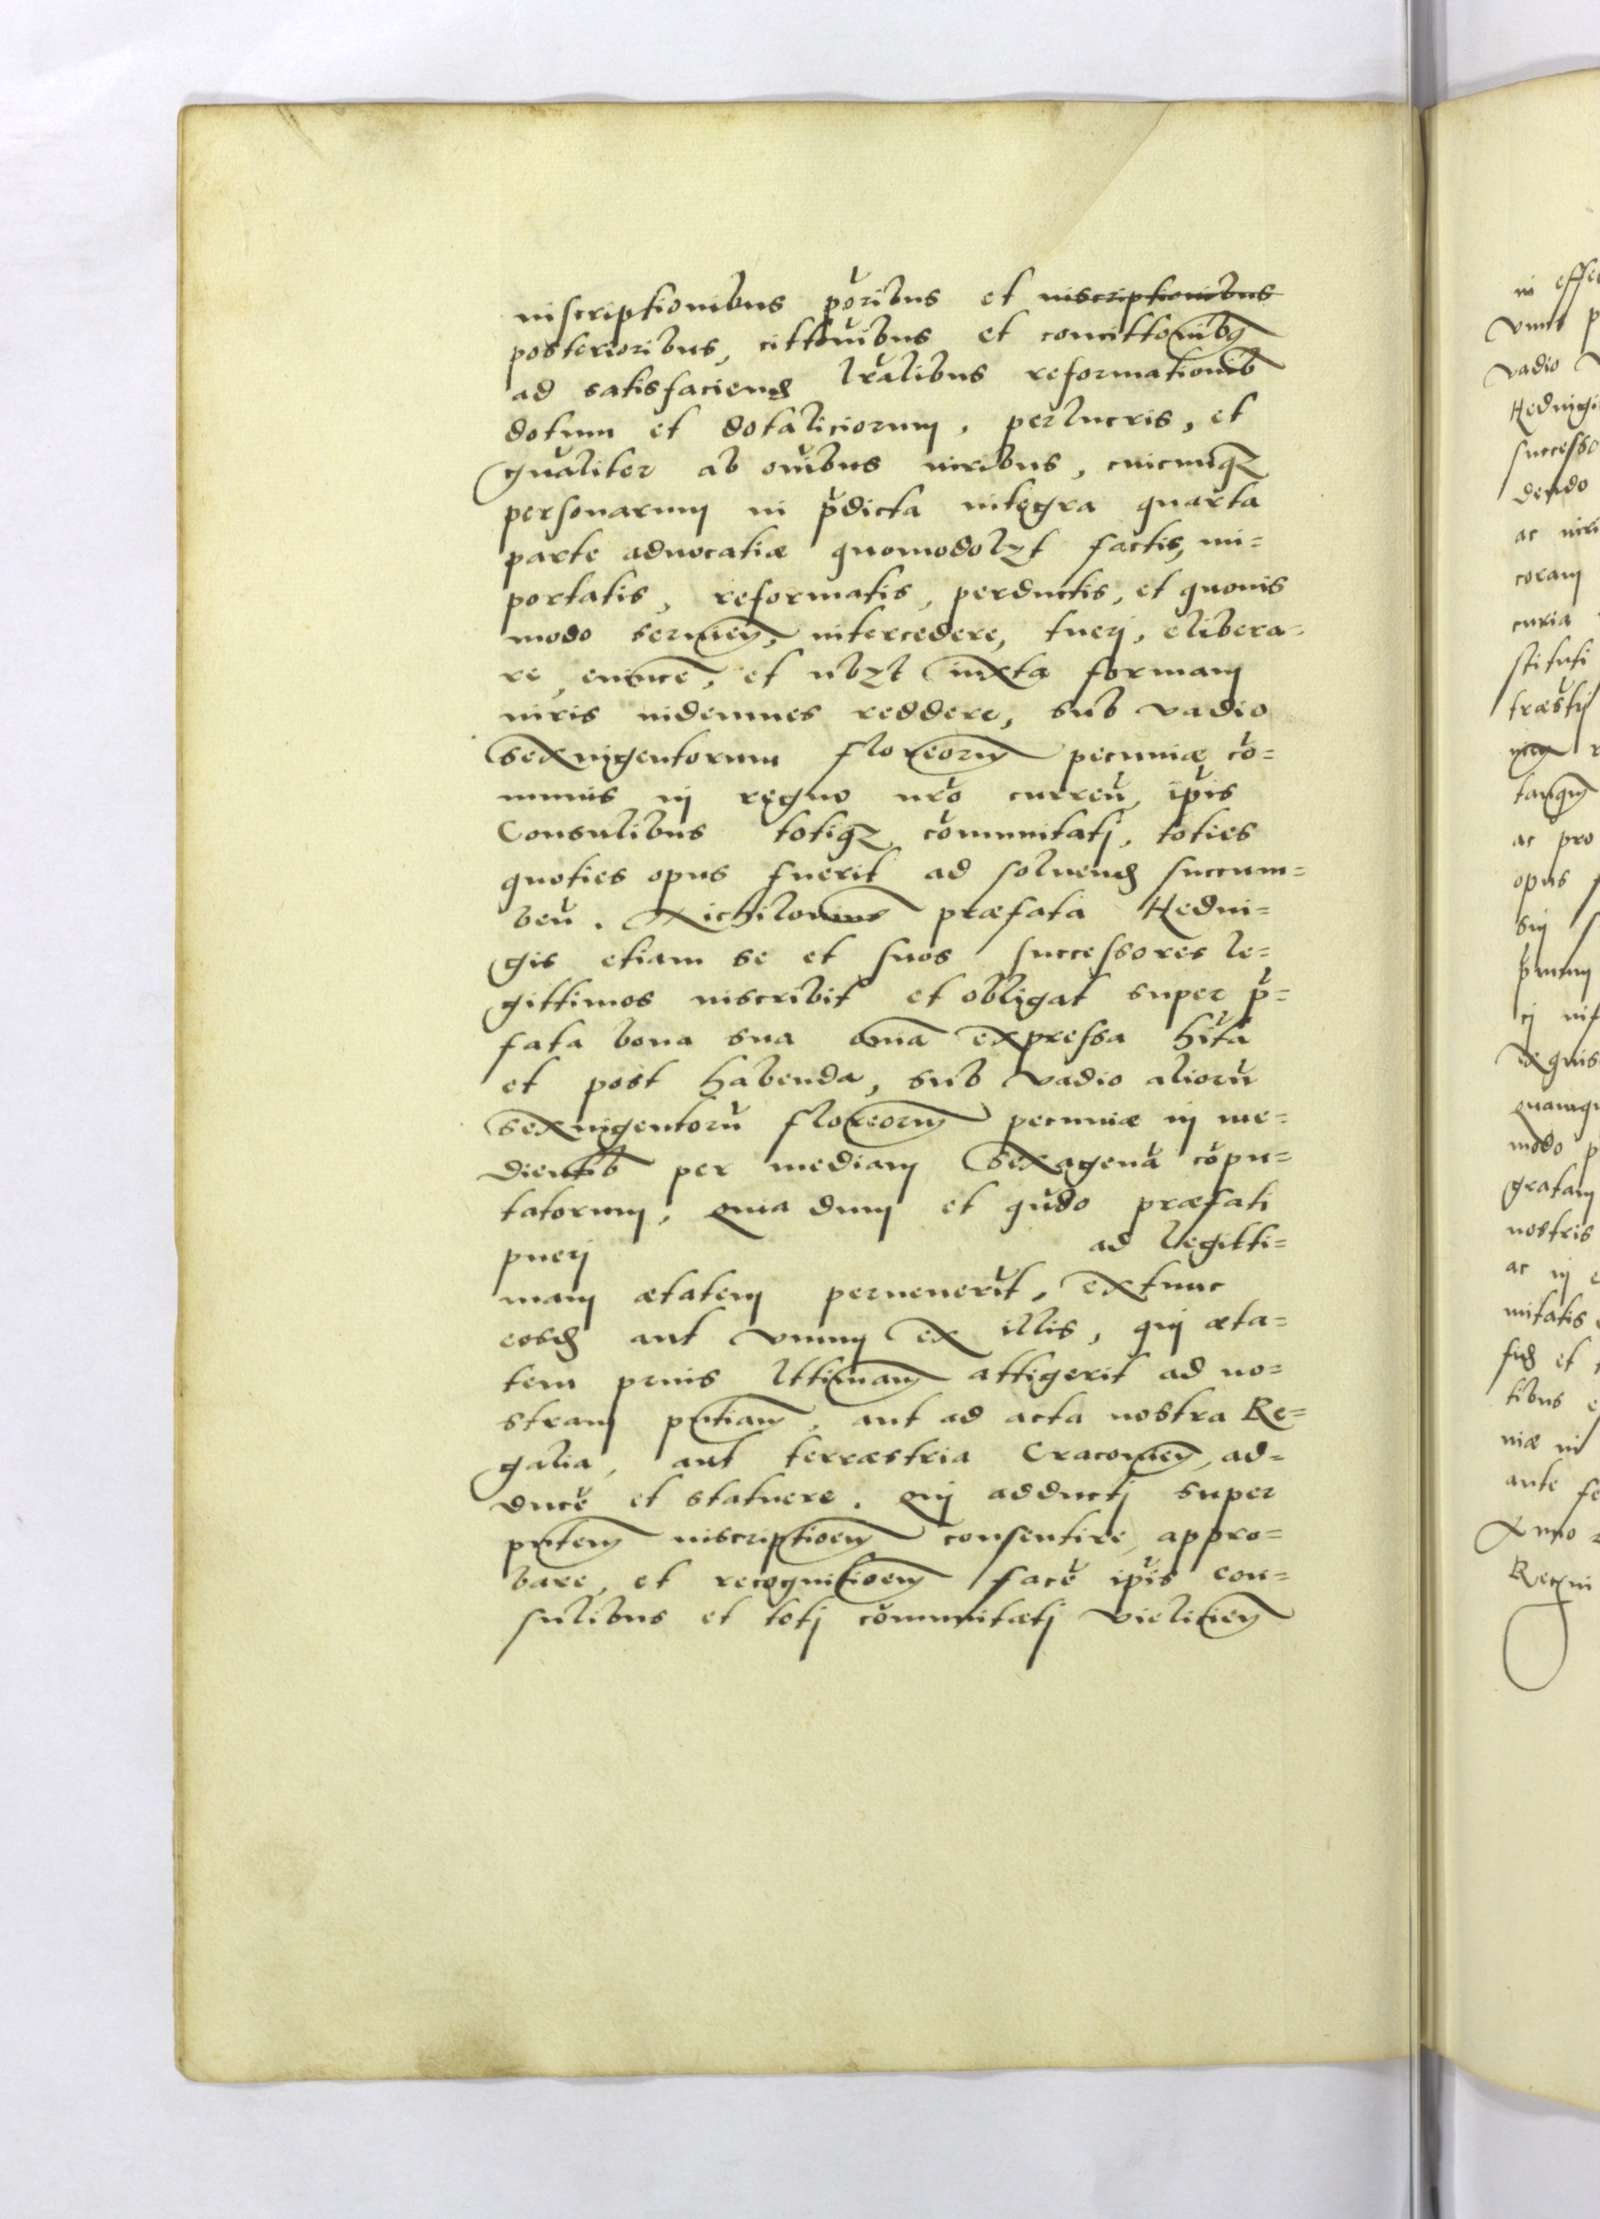 inscriptionibus põribus et inscriptionibus
posterioribus, cittõnibus et concittõnibus
ad satisfaciend lralibus reformationib
dotum et dotaliciorum, perlucris, et
gnaliter ab omnibus iuribus, cuicumq
personarum in pdicta integra quarta
parte aduocatiæ quomodolzt factis, im=
portatis, reformatis, perductis, et quouis
modo seruien, intercedere, tuerj, elibera=
re, euince, et vbzt iuxta formam
iuris indemnes reddere, sub vadio
Sexingentorum floreorum pecuniæ cõ=
munis in regno nrõ curreñ, ipis
Consulibus totiq, cõmunitatj, toties
quoties opus fuerit ad soluend succum=
beñ. Nichilominus præfata Hedui=
gis etiam se et suos successores le=
gittimos inscribit et obligat super p=
fata bona sua omã expressa hita
et post habenda, sub vadio aliorũ
sexingentorũ floreorum pecuniæ in me=
dientib per mediam Sexagenã cõpu=
tatorum, quia dum et qñdo præfati
puerj ad legitti=
mam ætatem peruenerit, extunc
eosd aut vnum ex illis, qui æta=
tem prius lttimam attigerit ad no=
stram pntiam, aut ad acta nostra Re=
galia, aut terræstria Cracouien, ad=
duce et statuere. Qui adductj super
pntem inscriptioem consentire, appro=
bare, et recognitioem face ipis con=
sulibus et totj cõmunitatj vielicien
in effe
vadio
Heduigi
successo
dendo
ac iuri
coram
curia
stituti
træstrj
tanqm
ac pro
opus f
requis
quamqu
modo p
gratam
nostris
ac in e
nitatis
tibus e
niæ in
ante fe
Anno
Regni